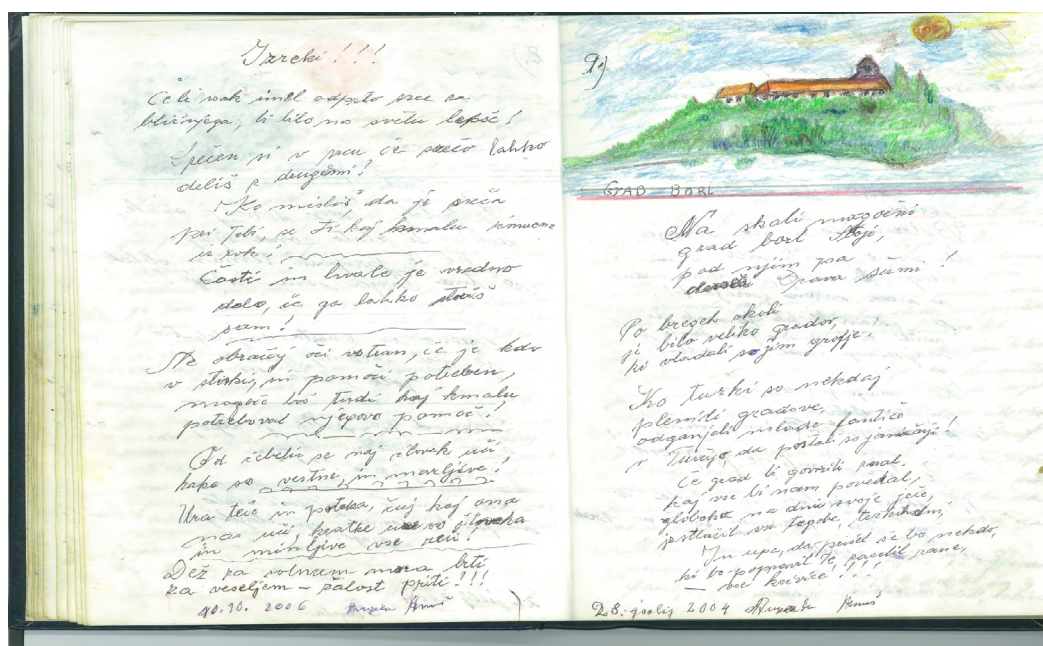 Izreki!!!
Če bi vsak imel odprto srce za
bližnjega, bi bilo na svetu lepše!
Srečen si v srcu če srečo lahko
deliš z drugimi!
Ko misliš, da je sreča
pri tebi, se ti kaj kmalu izmuzne
iz rok!
Časti in hvale je vredno
delo, če ga lahko storiš
sam!
Ne obračaj oči vstran, če je kdo
v stiski, in pomoči potreben,
mogoče boš tudi kaj kmalu
potreboval njegovo pomoč!
Od čebelic se naj človek uči
kako so vestne, in marljive!
Ura teče in poteka, čuj kaj ona
nas uči, kratke ure so človeka
in minljive vse reči!
Dež za solncem mora biti
za veseljem - žalost priti!!!
10.10. 2006
9)
GRAD BORL
Na skali mogočni
grad borl stoji,
pod njim pa
Drava šumi!
Po bregeh okoli
je bilo veliko gradov,
ki vladali so jim grofje!
Ko turki so nekdaj
plenili gradove,
odganjali mlade fantiče
v Turčijo, da postali so janičarji!
Če grad bi govoriti znal,
kaj vse bi nam povedal,
globoko na dnu svoje ječe,
je tlačil vse tegobe, težkih dni,
In upa, da prišel še bo nekdo,
ki bo popravil te, zacelil rane,
vse kreriče!!!
28. julij 2004